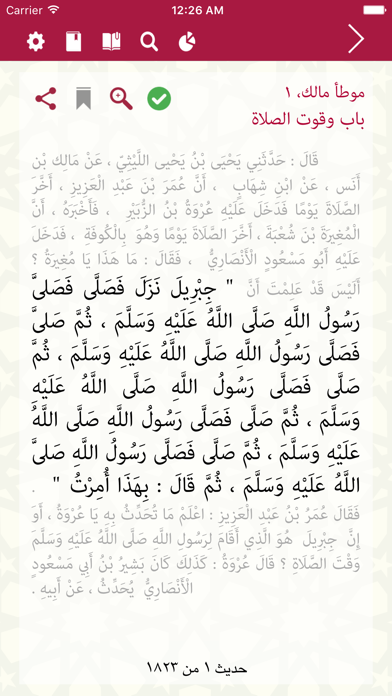 Carrier 12:26 AM
موطأ مالك، ١
باب وقوت الصلاة
قَالَ : حَدَّثَنِي يَحْيَى بْنُ يَحْيَى اللَّيْثِيُّ ، عَنْ مَالِكِ بْنِ
أَنَسٍ ، عَنْ ابْنِ شِهَابٍ ، أَنَّ عُمَرَ بْنَ عَبْدِ الْعَزِيزِ ، أَخَّرَ
الصَّلَاةَ يَوْمًا فَدَخَلَ عَلَيْهِ عُرْوَةُ بْنُ الزُّبَيْرِ ، فَأَخْبَرَهُ ، أَنَّ
الْمُغِيرَةَ بْنَ شُعْبَةَ ، أَخَّرَ الصَّلَاةَ يَوْمًا وَهُوَ بِالْكُوفَةِ ، فَدَخَلَ
عَلَيْهِ أَبُو مَسْعُودٍ الْأَنْصَارِيُّ ، فَقَالَ : مَا هَذَا يَا مُغِيرَةُ ؟
أَلَيْسَ قَدْ عَلِمْتَ أَنَّ " جِبْرِيلَ نَزَلَ فَصَلَّى فَصَلَّى
رَسُولُ اللَّهِ صَلَّى اللَّهُ عَلَيْهِ وَسَلَّمَ ، ثُمَّ صَلَّى
فَصَلَّى رَسُولُ اللَّهِ صَلَّى اللَّهُ عَلَيْهِ وَسَلَّمَ ، ثُمَّ
صَلَّى فَصَلَّى رَسُولُ اللَّهِ صَلَّى اللَّهُ عَلَيْهِ
وَسَلَّمَ ، ثُمَّ صَلَّى فَصَلَّى رَسُولُ اللَّهِ صَلَّى اللَّهُ
عَلَيْهِ وَسَلَّمَ ، ثُمَّ صَلَّى فَصَلَّى رَسُولُ اللَّهِ صَلَّى
اللَّهُ عَلَيْهِ وَسَلَّمَ ، ثُمَّ قَالَ : بِهَذَا أُمِرْتُ " .
فَقَالَ عُمَرُ بْنُ عَبْدِ الْعَزِيزِ : اعْلَمْ مَا تُحَدِّثُ بِهِ يَا عُرْوَةُ ، أَوَ
إِنَّ جِبْرِيلَ هُوَ الَّذِي أَقَامَ لِرَسُولِ اللَّهِ صَلَّى اللَّهُ عَلَيْهِ وَسَلَّمَ
وَقْتَ الصَّلَاةِ ؟ قَالَ عُرْوَةُ : كَذَلِكَ كَانَ بَشِيرُ بْنُ أَبِي مَسْعُودٍ
الْأَنْصَارِيُّ يُحَدِّثُ ، عَنْ أَبِيهِ .
حديث ١ من ١٨٢٣